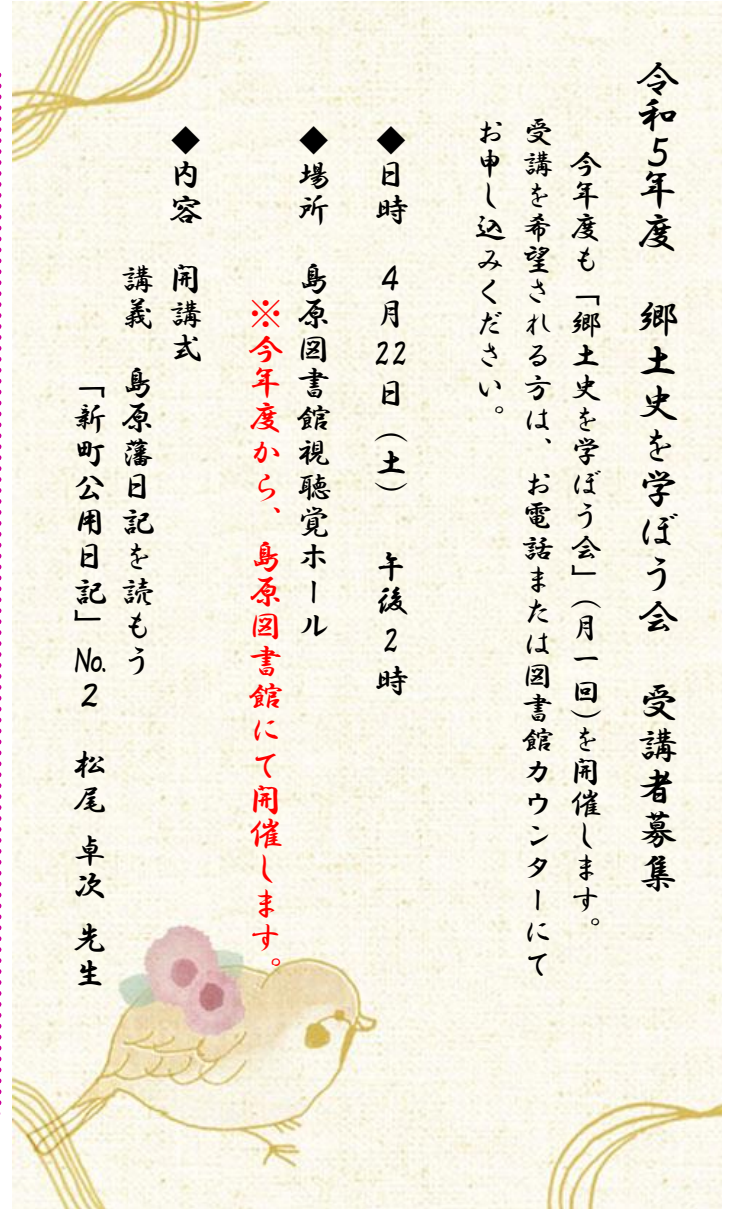 令和5年度　郷土史を学ぼう会　受講者募集
今年度も「郷土史を学ぼう会」（月一回）を開催します。
受講を希望される方は、お電話または図書館カウンターにて
お申し込みください。
◆日時　4月22日（土）　午後2時
◆場所　島原図書館視聴覚ホール
※今年度から、島原図書館にて開催します。
◆内容　開講式
講義　島原藩日記を読もう
「新町公用日記」No.2　松尾 卓次 先生